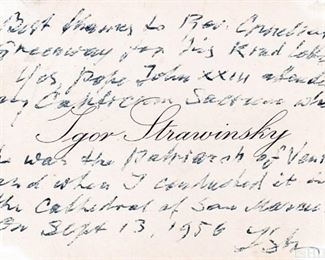 Best thanks to Rev. Cornelius
Greenway for his kind letter
Yes, Pope John XXIII attended
my Canticum Sacrum when
Igor Strawinsky
he was the Patriarch of Venice
and when I conducted it in
the Cathedral of San Marco
on Sept 13, 1956